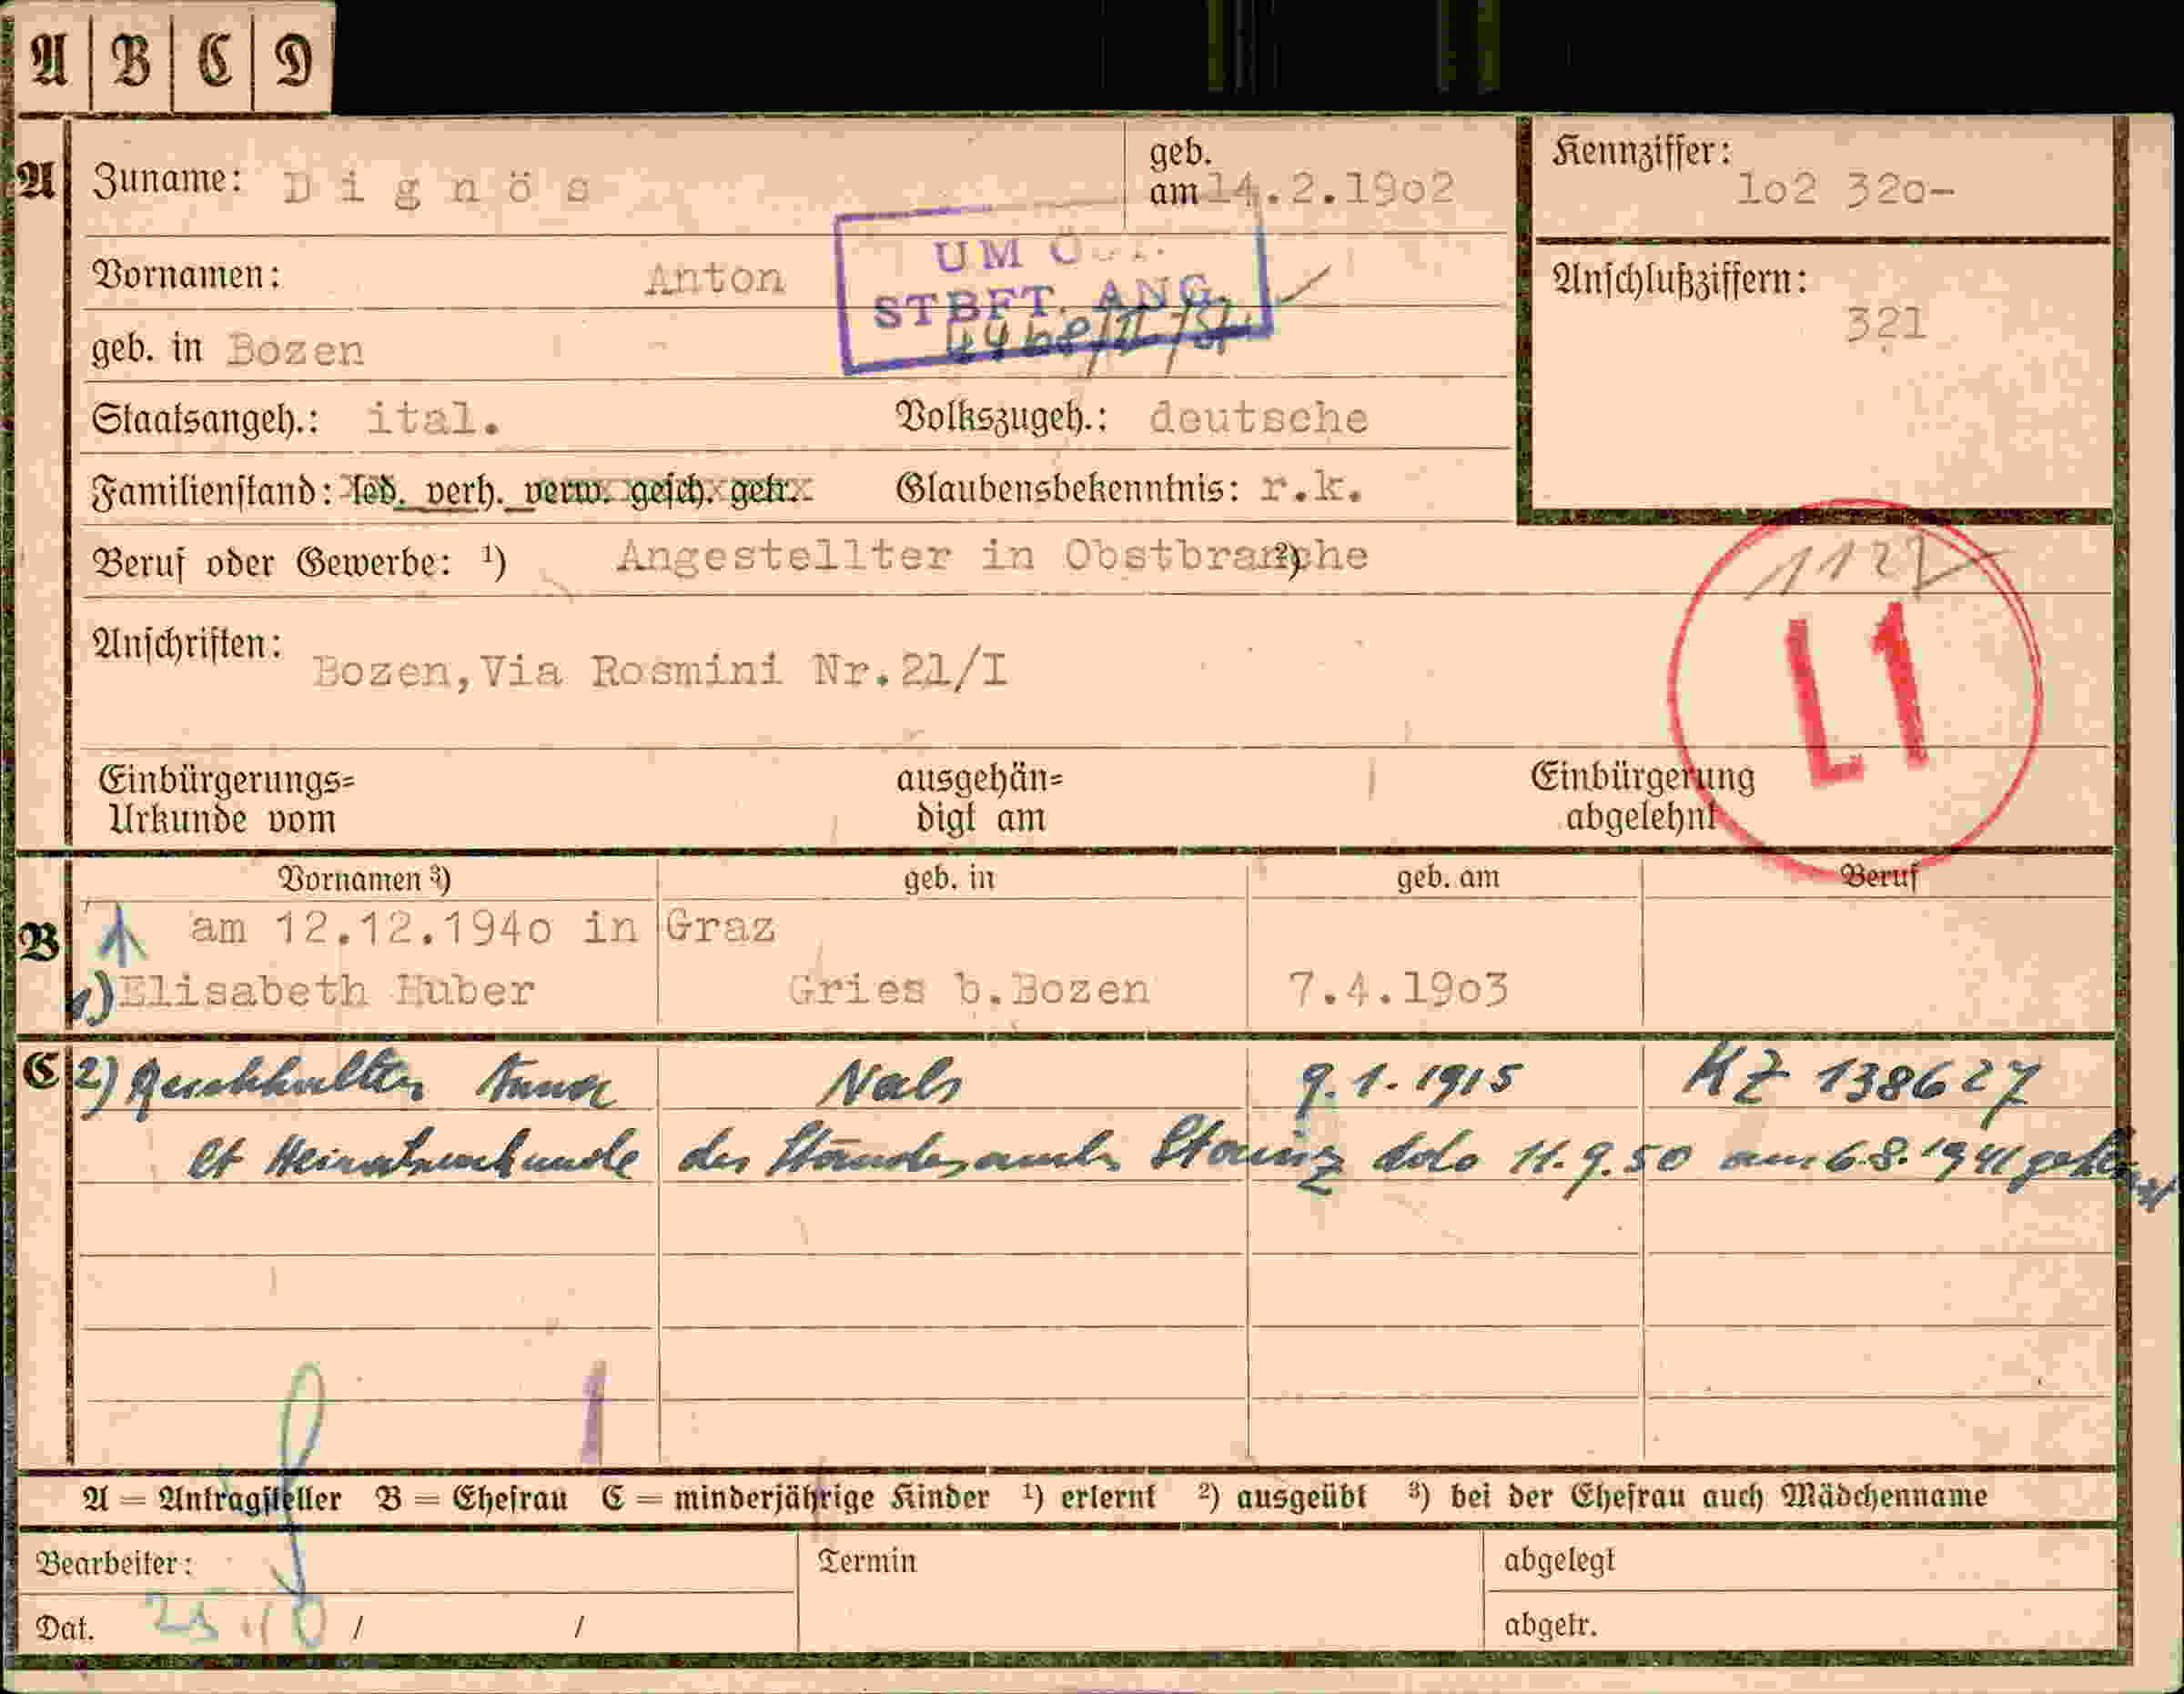 A B C D
A Zuname: Dignös geb. am 14.2.19o2 Kennziffer: 1o2 32o-
UM
Vornamen: Anton STBFT. ANG. Anschlußziffern: 321
geb. in Bozen
Staatsangeh.: ital. Volkszugeh.: deutsche
Familienstand: led. verh. verw. gesch. getr. Glaubensbekenntnis: r.k.
Beruf oder Gewerbe: ¹) Angestellter in Obstbranche ²)
L1
Anschriften: Bozen,Via Rosmini Nr.21/I
Einbürgerungs= ausgehän= Einbürgerung
Urkunde vom digt am abgelehnt
Vornamen ³) geb. in geb. am Beruf
B am 12.12.194o in Graz
1) Elisabeth Huber Gries b.Bozen 7.4.19o3
C 2) Nals 9.1.1915 KZ 138627
lt Heiratsurkunde des Standesamtes Stainz ddo 11.9.50 am 6.8.1941
A = Antragsteller B = Ehefrau C = minderjährige Kinder ¹) erlernt ²) ausgeübt ³) bei der Ehefrau auch Mädchenname
Bearbeiter: Termin abgelegt
Dat. / / abgetr.